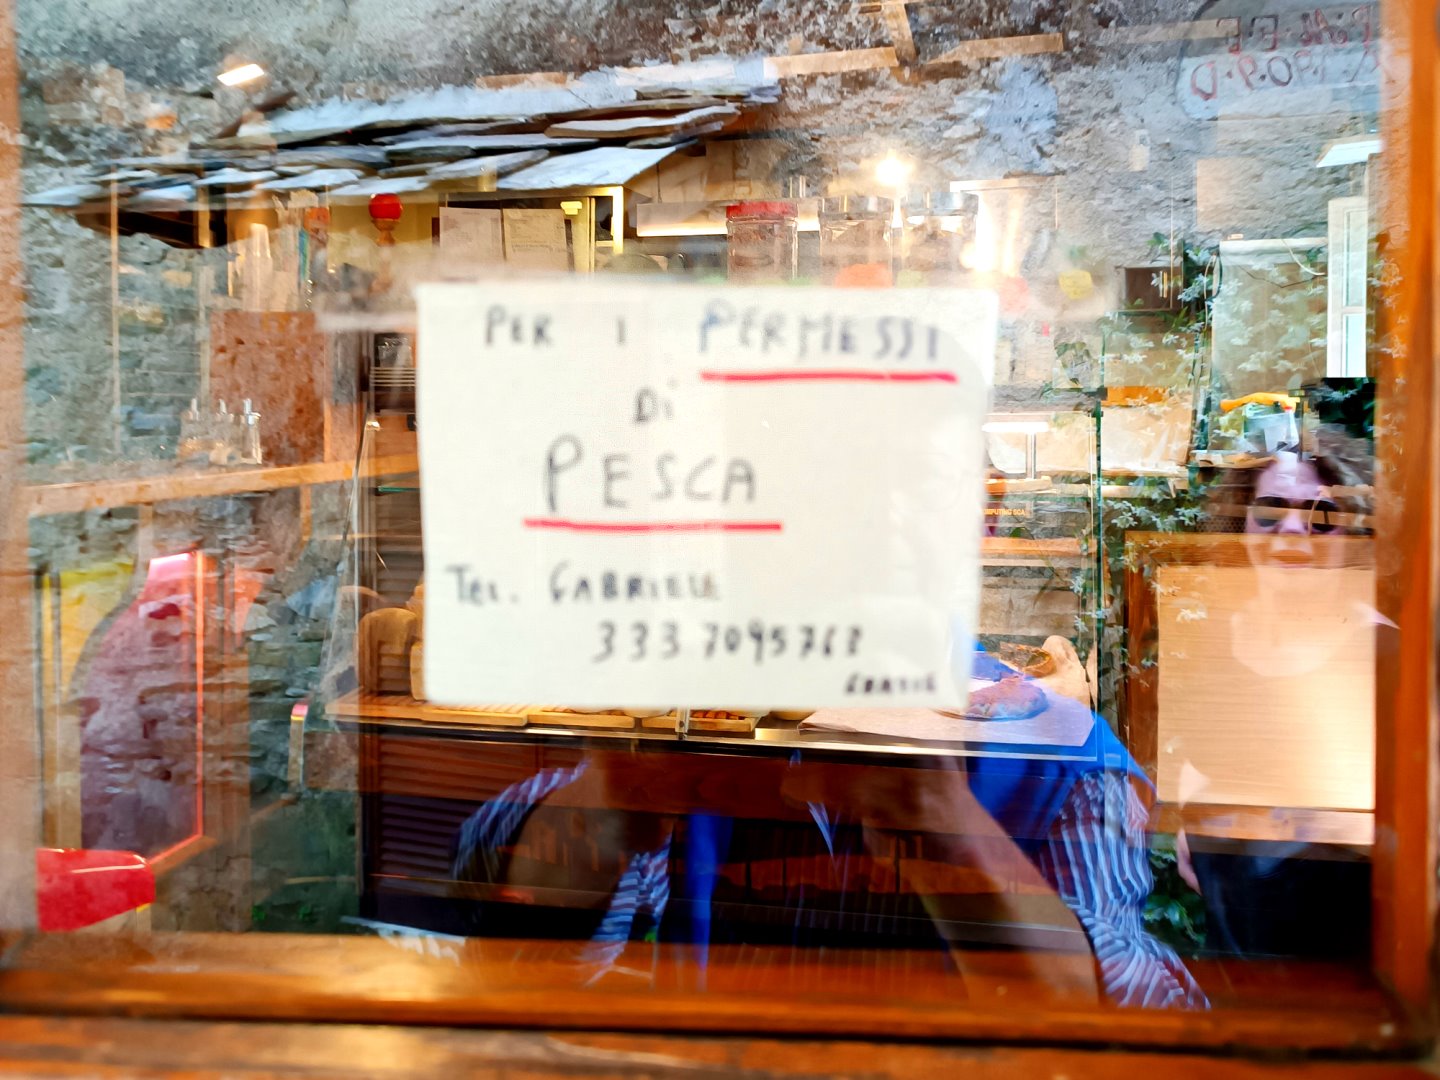 PER I PERMESSI
Di
PESCA
TEL. GABRIELE
333 7095762
GRAZIE